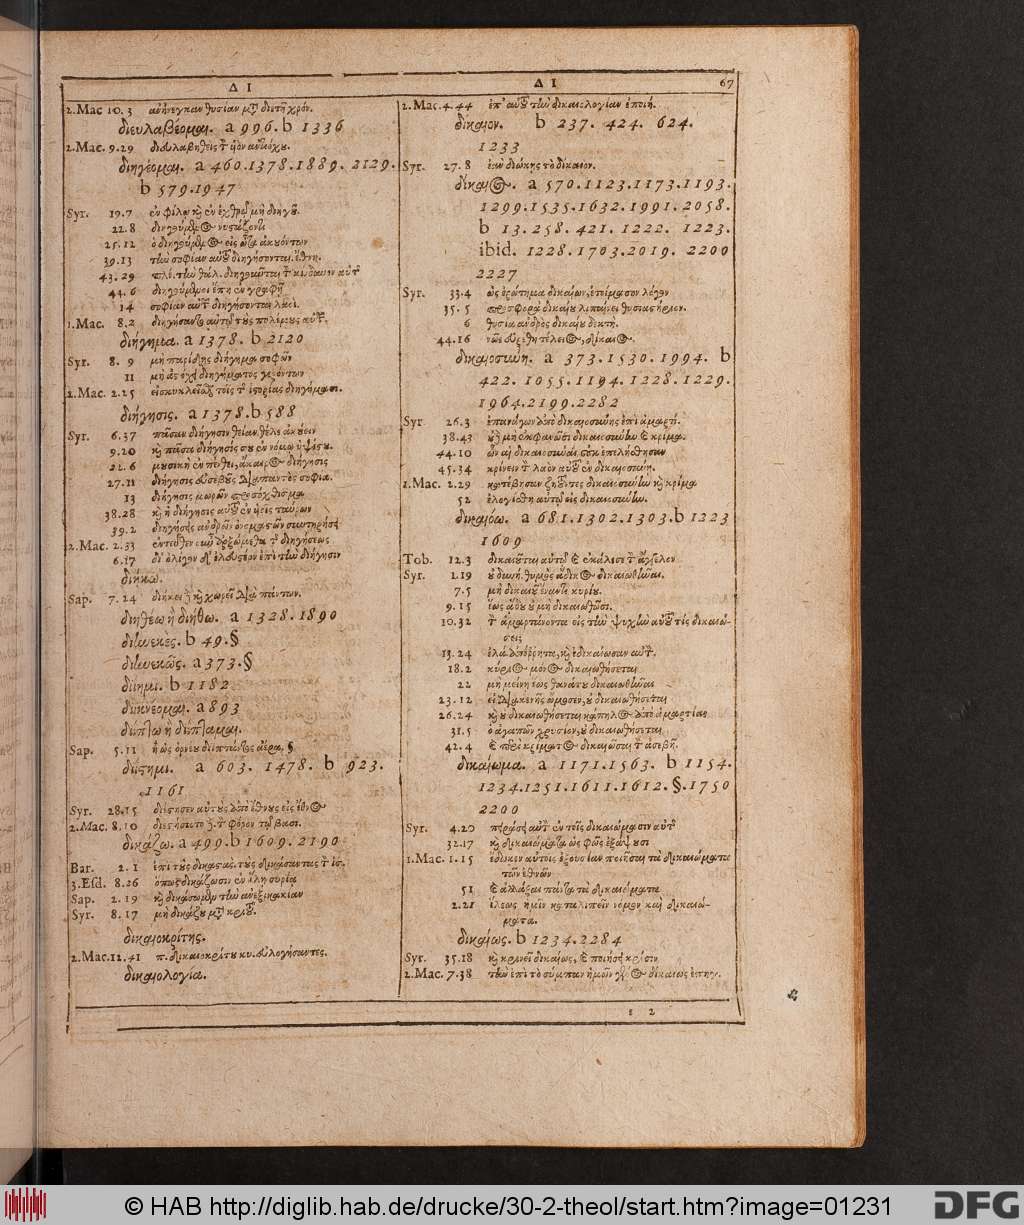 Δ Ι
2.Mac 10.3 ἀνήνεγκαν θυσίαν μτ̃ διετῆ χρόν.
διευλαβέομαι. a 996. b 1336
2.Mac. 9.29 διευλαβηθεὶς τ̀ υἱὸν ἀντιόχου.
διηγέομαι. a 460.1378.1889. 2129.
b 579.1947
Syr. 19.7 ἐν φίλῳ κὶ ἐν ἐχθρῷ μὴ διηγοῦ.
22.8 διηγούμενος νυστάζοντι
25.12 ὁ διηγούμενος εἰς ὦτα ἀκουόντων
39.13 τὴν σοφίαν αὐτοῦ διηγήσονται ἔθνη.
43.29
44.6 διηγούμενοι ἔπη ἐν γραφῇ
14 σοφίαν αὐτ̃ διηγήσονται λαοί.
1.Mac. 8.2 διηγήσαντο αὐτῷ τοὺς πολέμους αὐτ̃.
διήγημα. a 1378. b 2120
Syr. 8.9 μὴ παρίδῃς διήγημα σοφῶν
11 διηγήματος γερόντων
2.Mac. 2.25 τοῖς τ̃ ἱστορίας διηγήμασι.
διήγησις. a 1378. b 588
Syr. 6.37 πᾶσαν διήγησιν θείαν θέλε ἀκούειν
9.20 κὶ πᾶσα διήγησίς σου ἐν νόμῳ ὑψίστου.
22.6 μουσικὴ ἐν πένθει, ἄκαιρος διήγησις
27.11 διήγησις εὐσεβοῦς διαπαντὸς σοφία.
13 διήγησις μωρῶν προσόχθισμα
38.28 κὶ ἡ διήγησις αὐτοῦ ἐν υἱοῖς ταύρων
39.2 διηγήσεις ἀνδρῶν ὀνομαστῶν συντηρήσει
2.Mac. 2.33 ἐντεῦθεν οὖν ἀρξώμεθα τ̃ διηγήσεως
6.17 δι' ὀλίγων δ' ἐλευστέον ἐπὶ τὴν διήγησιν
διήκω.
Sap. 7.24 διήκει ἢ κὶ χωρεῖ διὰ πάντων.
διηθέω ἢ διήθω. a 1328.1890
διηνεκές. b 49.§
διηνεκῶς. a 373.§
διίημι. b 1182
διϊκνέομαι. a 893
διΐπτω ἢ διΐπταμαι.
Sap. 5.11 ἢ ὡς ὀρνέου διϊπτάντος ἀέρα. §
διΐστημι. a 603. 1478. b 923.
1161
Syr. 28.15 διέστησεν αὐτοὺς ἀπὸ ἔθνους εἰς ἔθνος
2.Mac. 8.10 διεστήσατο τ̀ φόρον τῷ βασι.
δικάζω. a 499. b 1609. 2190
Bar. 2.1 ἐπὶ τοὺς δικαστὰς τοὺς δικάσαντας τ̀ ἰσ.
3.Esd. 8.26 ὅπως δικάζωσιν ἐν ὅλῃ συρίᾳ
Sap. 2.19 κὶ δικάσωμεν τὴν ἀνεξικακίαν
Syr. 8.17 μὴ δικάζου μτ̃ κριτοῦ.
δικαιοκρίτης.
2.Mac. 12.41 π. δικαιοκρίτου κυ. εὐλογήσαντες.
δικαιολογία.
Δ Ι 67
2.Mac. 4.44 ἐπ' αὐτοῦ τὴν δικαιολογίαν ἐποιή.
δίκαιον. b 237. 424. 624.
1233
Syr. 27.8 ἐὰν διώκῃς τὸ δίκαιον.
δίκαιος. a 570.1123.1173.1193.
1299.1535.1632.1991.2058.
b 13.258.421. 1222. 1223.
ibid. 1228.1703.2019. 2200
2227
Syr. 33.4 ὡς ἐρώτημα δικαίων, ἑτοίμασον λόγον
35.5 προσφορὰ δικαίου λιπαίνει θυσιαστήριον.
6 θυσία ἀνδρὸς δικαίου δεκτή.
44.16 νῶε εὑρέθη τέλειος, δίκαιος.
δικαιοσύνη. a 373.1530.1994. b
422. 1055.1194.1228.1229.
1964.2199.2282
Syr 26.3 ἐπανάγων ἀπὸ δικαιοσύνης ἐπὶ ἁμαρτί.
38.43 οὐδὲ μὴ ἐκφανῶσι δικαιοσύνην κὶ κρίμα.
44.10 ὧν αἱ δικαιοσύναι οὐκ ἐπελήσθησαν
45.34 κρίνειν τ̀ λαὸν αὐτοῦ ἐν δικαιοσύνῃ.
1.Mac. 2.29 κατέβησαν ζητοῦντες δικαιοσύνην κὶ κρίμα
52 ἐλογίσθη αὐτῷ εἰς δικαιοσύνην.
δικαιόω. a 681.1302.1303. b 1223
1609
Tob. 12.3 δικαιοῦται αὐτῷ κὶ ἐκάλεσε τ̀ ἄγγελον
Syr. 1.19 οὐ δυνή. θυμὸς ἄδικος δικαιωθῆναι.
7.5 μὴ δικαιοῦ ἔναντι κυρίου.
9.15 ἕως ᾅδου οὐ μὴ δικαιωθῶσι.
10.32 τ̀ ἁμαρτάνοντα εἰς τὴν ψυχὴν αὐτοῦ τίς δικαιώ-
σει;
13.24 ἐλά. ἀπόρρητα, κὶ ἐδικαίωσαν αὐτ̀.
18.2 κύριος μόνος δικαιωθήσεται
22 μὴ μείνῃ ἕως θανάτου δικαιωθῆναι
23.12 εἰ διακενῆς ὤμοσεν, οὐ δικαιωθήσεται
26.24 κὶ οὐ δικαιωθήσεται κάπηλος ἀπὸ ἁμαρτίας
31.5 ὁ ἀγαπῶν χρυσίον, οὐ δικαιωθήσεται
42.4 κὶ περὶ κρίματος δικαιῶσαι τ̀ ἀσεβῆ.
δικαίωμα. a 1171.1563. b 1154.
1234.1251.1611.1612.§.1750
2200
Syr. 4.20 πειράσει αὐτ̀ ἐν τοῖς δικαιώμασιν αὐτ̃
32.17 κὶ δικαιώματα ὡς φῶς ἐξάψουσι
1.Mac. 1.15 ἔδωκεν αὐτοῖς ἐξουσίαν ποιῆσαι τὰ δικαιώματα
τῶν ἐθνῶν
51 κὶ ἀλλάξαι πάντα τὰ δικαιώματα
2.21 ἵλεως ἡμῖν καταλιπεῖν νόμον καὶ δικαιώ-
ματα.
δικαίως. b 1234.2284
Syr. 35.18 κὶ κρινεῖ δικαίως, κὶ ποιήσει κρίσιν
2.Mac. 7.38 τὴν ἐπὶ τὸ σύμπαν ἡμῶν γένος δικαίως ἐπηγ.
s 2
© HAB http://diglib.hab.de/drucke/30-2-theol/start.htm?image=01231
DFG